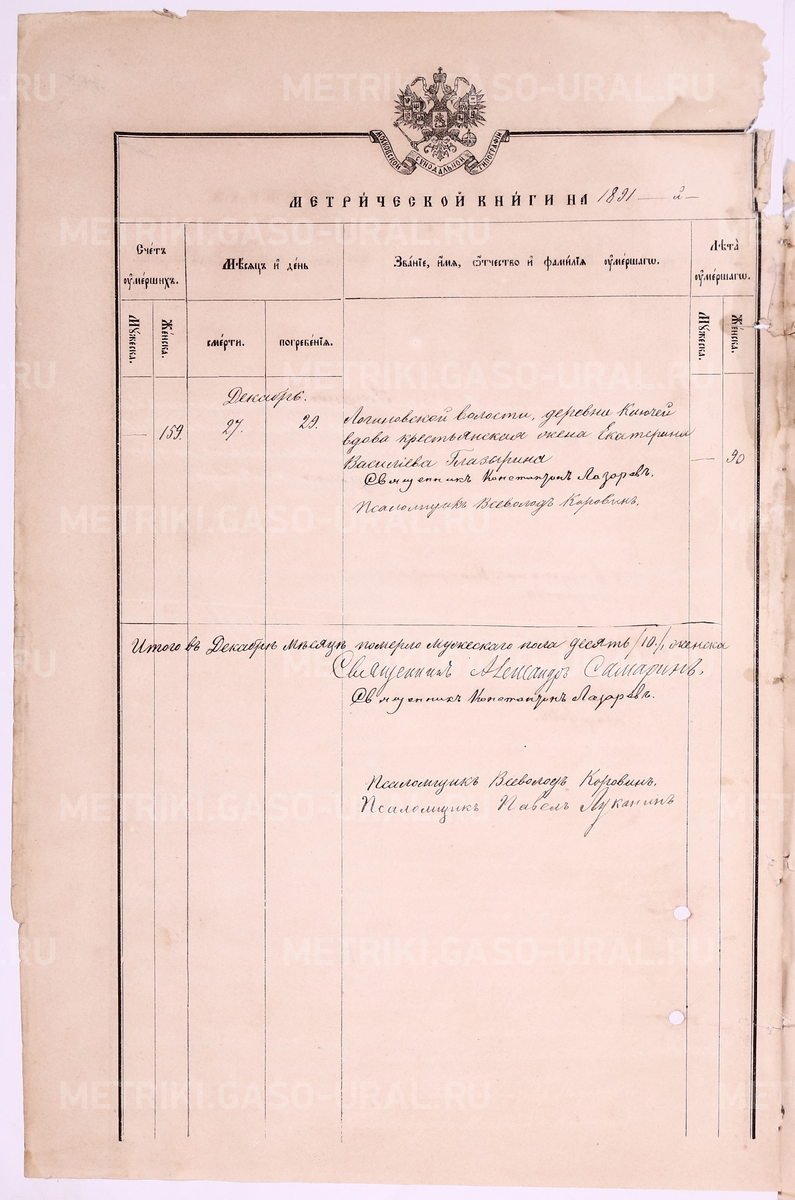 МОСКОВСКОЙ СѴНОДАЛЬНОЙ ТИПОГРАФІИ
МЕТРИ́ЧЕСКОЙ КНИ́ГИ НА 1891 — й —
Сче́тъ ᲂу҆ме́ршихъ.
Мѣ́сяцъ и҆ де́нь
Зва́нїе, и҆́мѧ, ѻ҆́тчество и҆ фами́лїѧ ᲂу҆ме́ршагѡ.
Лѣ́та ᲂу҆ме́ршагѡ.
Мꙋ́жеска.
Же́нска.
сме́рти.
погребе́нїѧ.
Мꙋ́жеска.
Же́нска.
Декабрь.
— 159. 27. 29. Логиновской волости, деревни Ключей
вдова крестьянская жена Екатерина
Васильева Глазырина — 90
Священникъ Константинъ Лазаревъ.
Псаломщикъ Всеволодъ Коровинъ.
Итого въ Декабрѣ мѣсяцѣ померло мужескаго пола десять /10./, женска
Священникъ Александръ Самаринъ.
Священникъ Константинъ Лазаревъ.
Псаломщикъ Всеволодъ Коровинъ.
Псаломщикъ Павелъ Луканинъ
METRIKI.GASO-URAL.RU